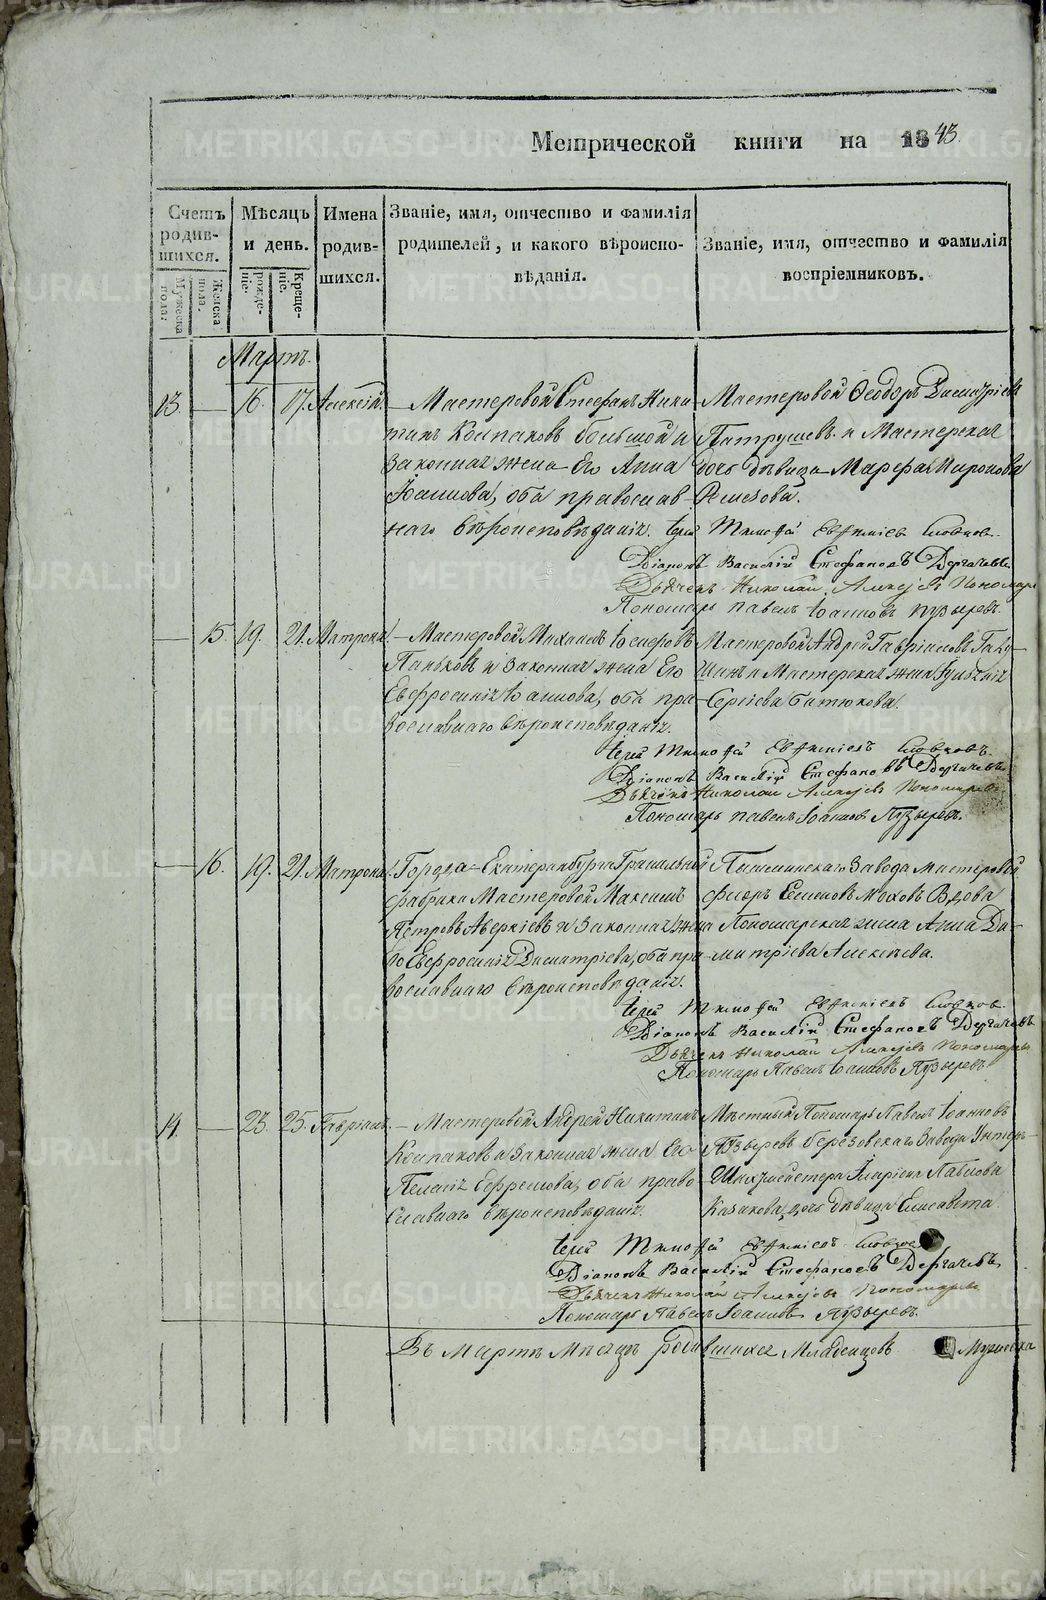 Метрической книги на 1843.
Счетъ родившихся.
Мужеска пола.
Женска пола.
Мѣсяцъ и день.
рожденіе.
Крещеніе.
Имена родившихся.
Званіе, имя, отчество и фамилія
родителей, и какого вѣроиспо-
вѣданія.
Званіе, имя, отчество и фамилія
воспріемниковъ.
Мартъ.
13. — 16. 17. Алексій.
— Мастеровой Стефанъ Ники-
тинъ Колпаковъ большой и
законная жена Его Анна
Іоаннова, оба православ-
наго вѣроисповѣданія.
Мастеровой Ѳеодоръ Димитріевъ
Патрушевъ и Мастерская
дочь дѣвица Марѳа Миронова
Ремезова.
Іерей Тимоѳей Евѳиміевъ Словцовъ.
Діаконъ Василій Стефановъ Дергачевъ.
Дьячекъ Николай Алексѣевъ Пономаре
Пономарь Павелъ Іоанновъ Пузыревъ.
— 15. 19. 21. Матрона.
— Мастеровой Михаилъ Іосифовъ
Паньковъ и законная жена Его
Евфросинія Іоаннова, оба пра-
вославнаго вѣроисповѣданія.
Мастеровой Андрей Гавриловъ Гаку-
шинъ и Мастерская жена
Сергіева Батюкова.
Іерей Тимоѳей Евѳиміевъ Словцовъ.
Діаконъ Василій Стефановъ Дергачевъ.
Дьячекъ Николай Алексѣевъ Пономаре
Пономарь Павелъ Іоанновъ Пузыревъ.
— 16. 19. 21. Матрона.
Города Екатеринбурга Гранильной
фабрики Мастеровой Максимъ
Петровъ Аверкіевъ и законная жена
Его Евфросинія Димитріева, оба пра-
вославнаго вѣроисповѣданія.
Пышминскаго завода мастеровой
Семеновъ Моховъ Вдова
Пономарская жена Анна Ди-
митріева Алексѣева.
Іерей Тимоѳей Евѳиміевъ Словцов.
Діаконъ Василій Стефановъ Дергачевъ
Дьячекъ Николай Алексѣевъ Пономаревъ
Пономарь Павелъ Іоанновъ Пузыревъ
14. — 23. 25. Гавріилъ.
— Мастеровой Андрей Никитинъ
Колпаковъ и законная жена Его
Пелагія Ефремова, оба право-
славнаго вѣроисповѣданія.
Мѣстный Пономарь Павелъ Іоанновъ
Пузыревъ Березовскаго завода Унтеръ-
Шихтмейстера Павлова
Казакова дочь дѣвица Елисавета
Іерей Тимоѳей Евѳиміевъ
Діаконъ Василій Стефановъ Дергачевъ
Дьячекъ Николай Алексѣевъ Пономарев
Пономарь Павелъ Іоанновъ Пузыревъ.
Въ Мартѣ Мѣсяцѣ родившихся Младенцовъ Мужеска
METRIKI.GASO-URAL.RU